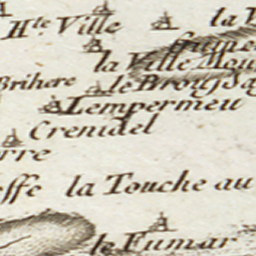 Hte Ville
la
la Ville
Brihare
le Brousda
Lempermeu
Crenidel
la Touche au
le Fumar